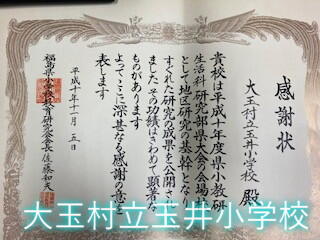 感謝状
大玉村立玉井小学校 殿
貴校は平成十年度県小教研
生活科研究部県大会の会場校
として地区研究の基幹となり
すぐれた研究成果を公開され
ました その功績はきわめて顕著な
ものがあります
よってここに深甚なる感謝の意を
表します
平成十年十一月 五日
福島県小学校教育研究会長 佐藤和夫
大玉村立玉井小学校